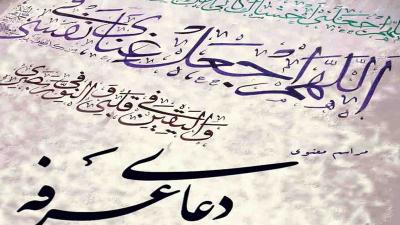 اَللّهُمَّ اجْعَلْ غِنایَ فی نَفْسی
وَ الْیَقینَ فی قَلْبی وَ النُّورَ فی بَصَری
مراسم معنوی
دعای عرفه